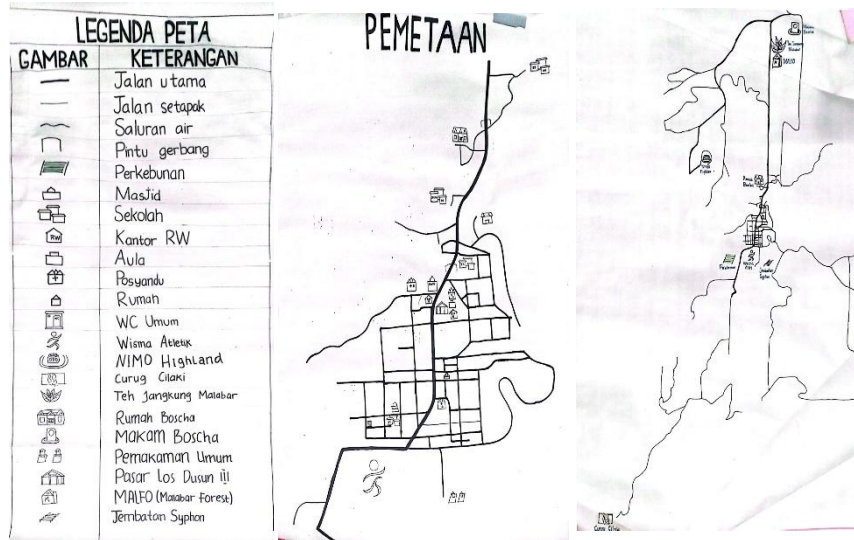 LEGENDA PETA
GAMBAR KETERANGAN
Jalan utama
Jalan setapak
Saluran air
Pintu gerbang
Perkebunan
Masjid
Sekolah
RW Kantor RW
Aula
Posyandu
Rumah
WC Umum
Wisma Atletik
NIMO Highland
Curug Cilaki
Teh Jangkung Malabar
Rumah Boscha
Makam Boscha
Pemakaman Umum
Pasar Los Dusun III
MALFO (Malabar Forest)
Jembatan Syphon
PEMETAAN
MALFO